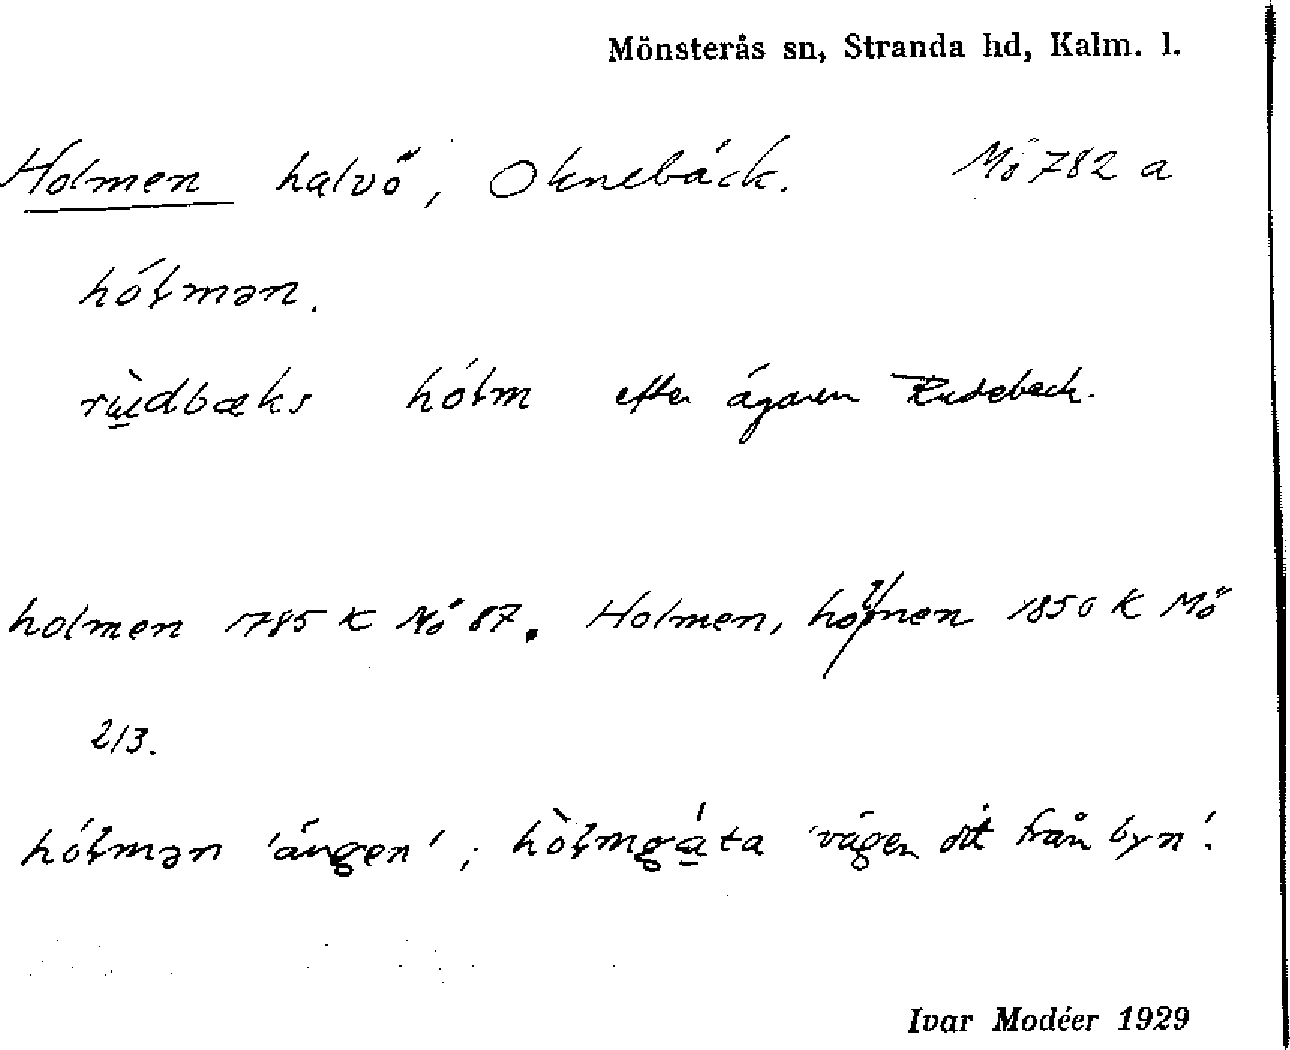 Mönsterås sn, Stranda hd, Kalm. l.
Holmen halvö, Oknebäck. Mö 782 a
hóɫmən.
rùdbæks hólm efter ägaren Rudebeck.
holmen 1785 K Mö 87. Holmen, 1850 K Mö
213.
hóɫmən 'ängen'; hòɫmgáta 'vägen dit från byn'.
Ivar Modéer 1929